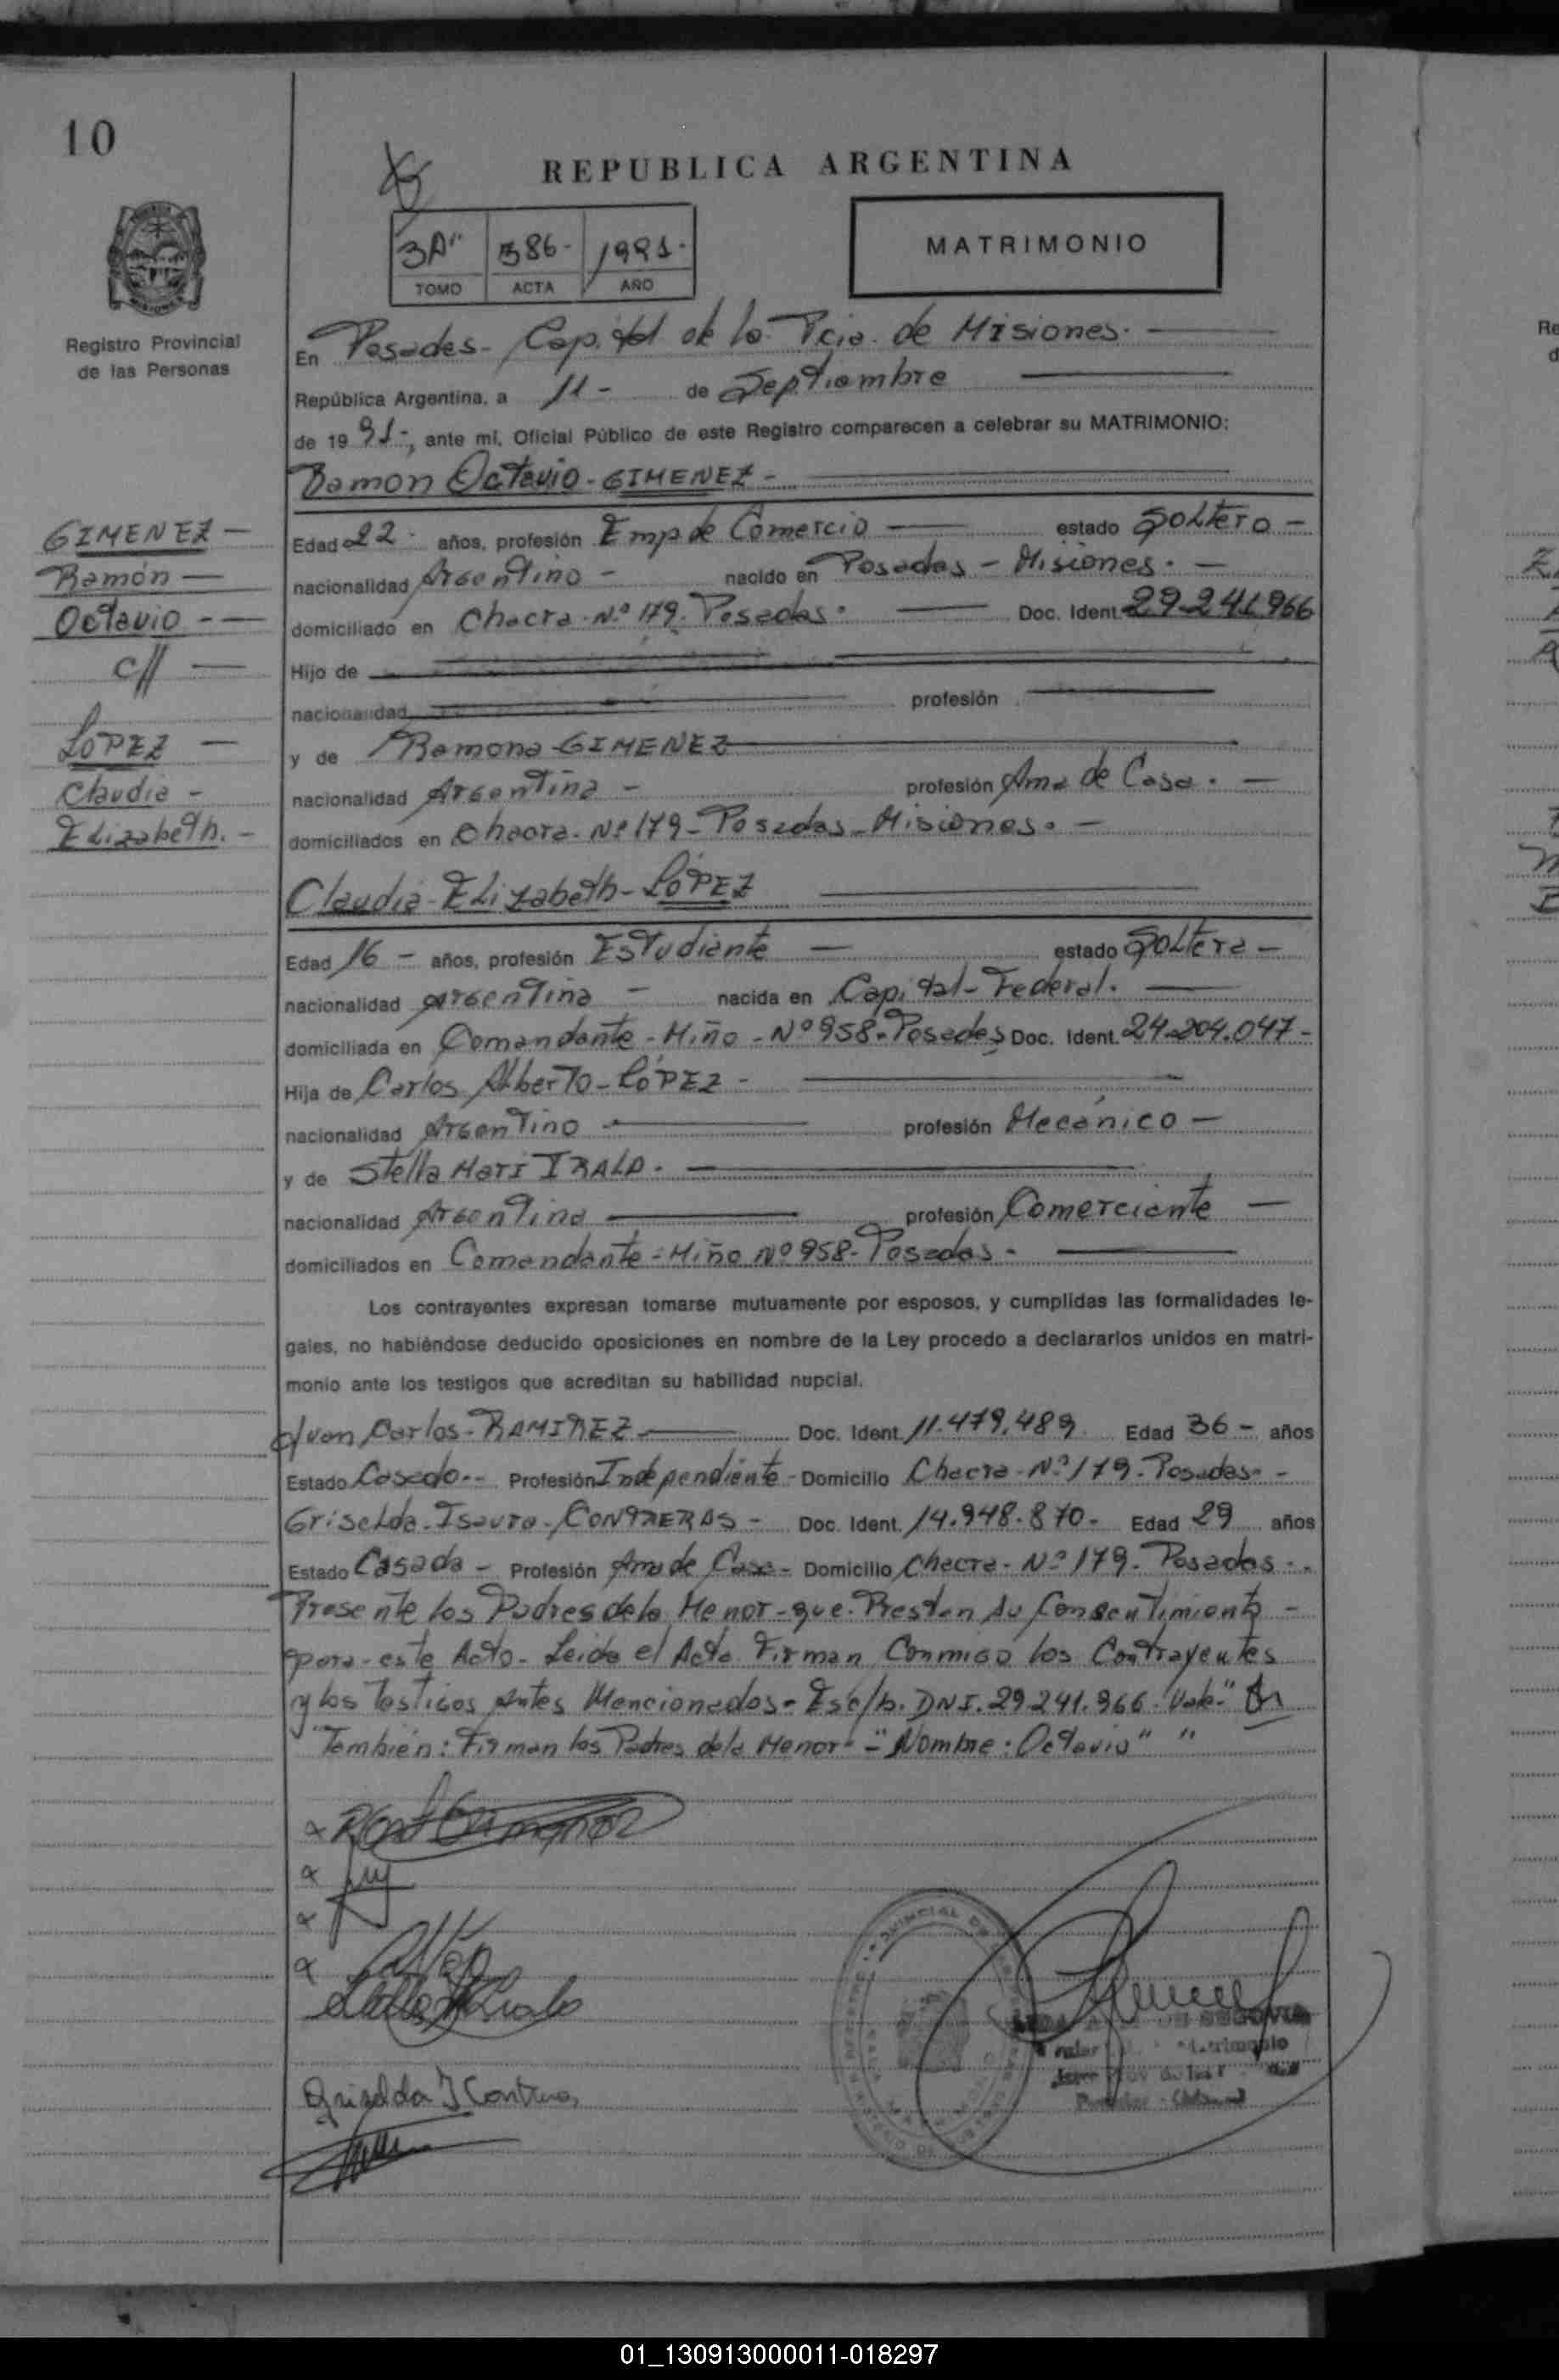 10
REPUBLICA ARGENTINA
3A" 386- 1991-
TOMO ACTA AÑO
MATRIMONIO
Registro Provincial
de las Personas
En Posadas- Capital de la Pcia. de Misiones.
República Argentina, a 11- de Septiembre
de 1991-, ante mí, Oficial Público de este Registro comparecen a celebrar su MATRIMONIO:
Ramon Octavio-GIMENEZ-
GIMENEZ-
Ramón-
Octavio--
c//-
LOPEZ-
Claudia-
Elizabeth.-
Edad 22. años, profesión Emp de Comercio- estado Soltero-
nacionalidad Argentino- nacido en Posadas-Misiones.-
domiciliado en Chacra-Nº 179-Posadas. Doc. Ident. 29.241.966
Hijo de
nacionalidad profesión
y de Ramona-GIMENEZ
nacionalidad Argentina- profesión Ama de Casa.-
domiciliados en Chacra-Nº 179-Posadas-Misiones.-
Claudia-Elizabeth-LÓPEZ
Edad 16- años, profesión Estudiante- estado Soltera-
nacionalidad Argentina- nacida en Capital-Federal.-
domiciliada en Comandante-Miño-Nº 958-Posadas Doc. Ident. 24.204.047-
Hija de Carlos Alberto-LÓPEZ-
nacionalidad Argentino- profesión Mecánico-
y de Stella Mari IRALA.-
nacionalidad Argentina- profesión Comerciante-
domiciliados en Comandante-Miño Nº 958-Posadas-
Los contrayentes expresan tomarse mutuamente por esposos, y cumplidas las formalidades le-
gales, no habiéndose deducido oposiciones en nombre de la Ley procedo a declararlos unidos en matri-
monio ante los testigos que acreditan su habilidad nupcial.
Juan Carlos-RAMIREZ- Doc. Ident. 11.479.489 Edad 36- años
Estado Casado-- Profesión Independiente- Domicilio Chacra-Nº 179-Posadas-
Griselda-Isaura-CONTRERAS- Doc. Ident. 14.948.870- Edad 29 años
Estado Casada- Profesión Ama de Casa- Domicilio Chacra-Nº 179-Posadas-.
Presente los Padres de la Menor-que-Prestan su Consentimiento-
para-este Acto-Leida el Acta Firman Conmigo los Contrayentes
y los Testigos Antes Mencionados-Esc/b. DNI. 29.241.966 "Vale"
"También: Firman los Padres de la Menor"-"Nombre: Octavio" "
Griselda I Contreras
01_130913000011-018297